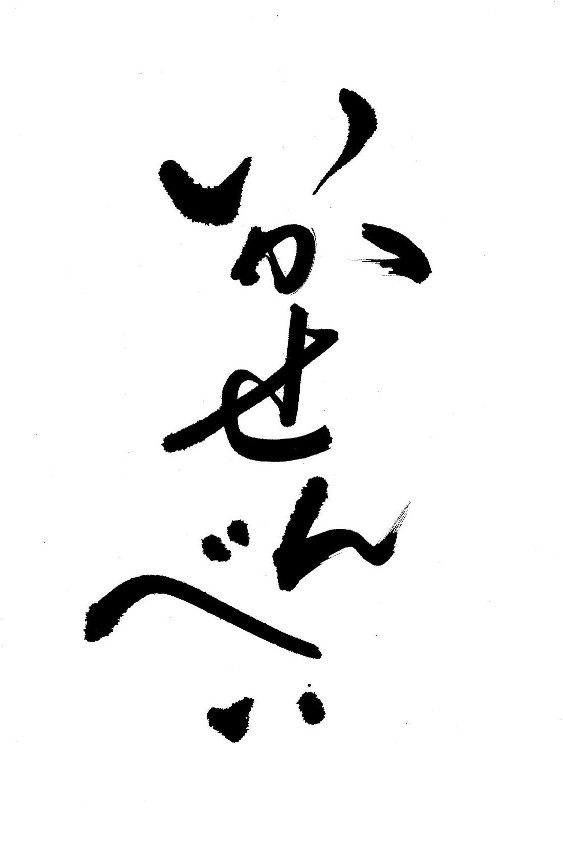 いかせんべい